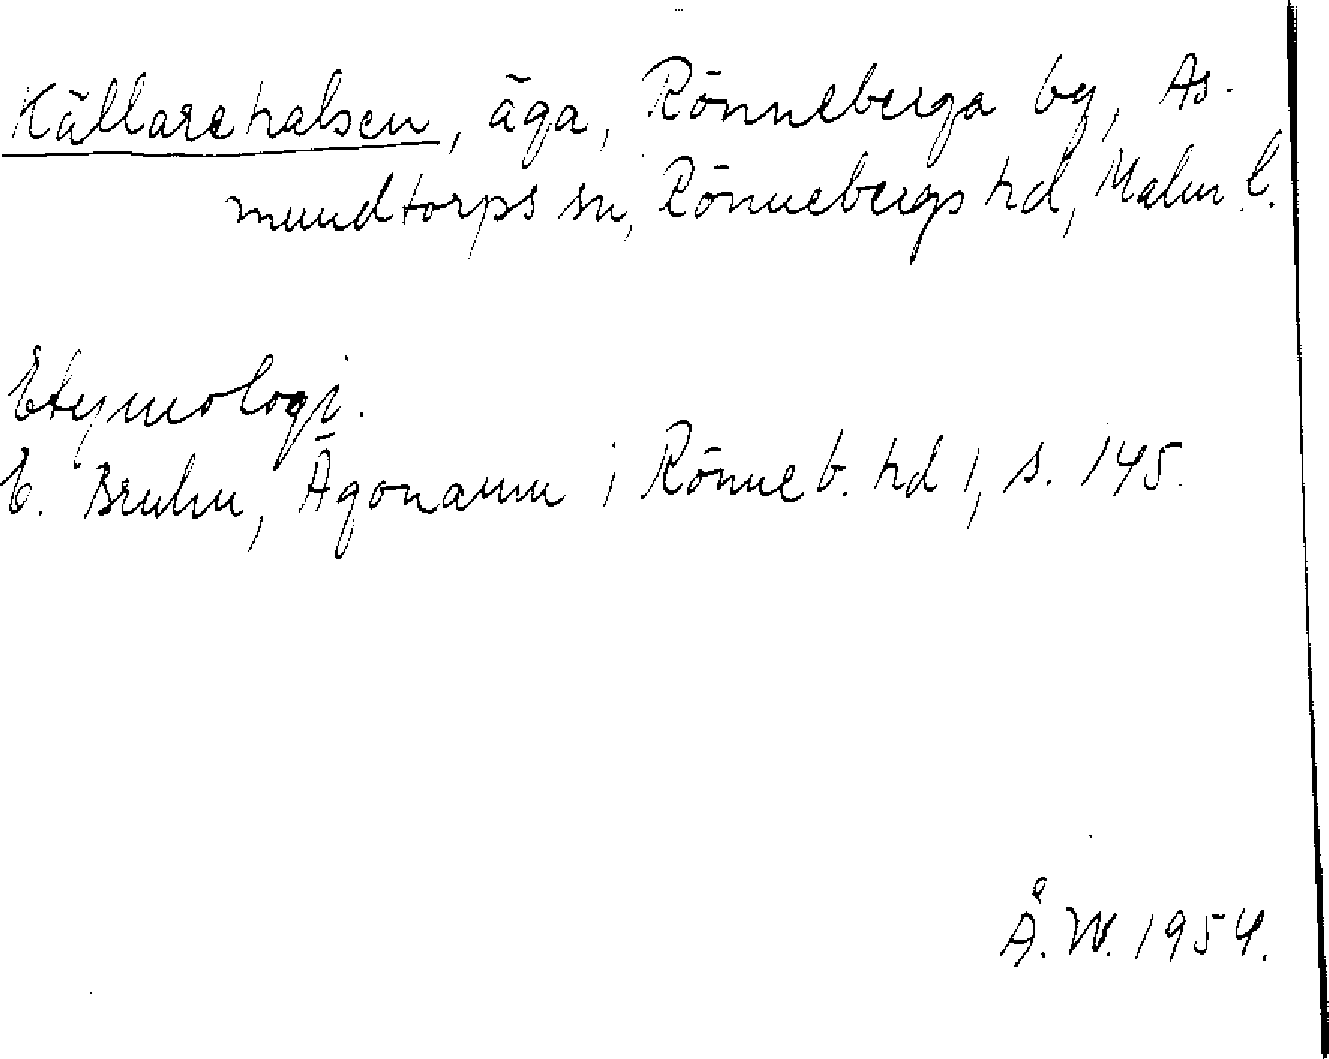 Källarehalsen, äga, Rönneberga by, As-
mundtorps sn, Rönnebergs hd, Malm. l.
Etymologi.
E. Bruhn, Ägonamn i Rönneb. hd 1, s. 145.
Å. W. 1954.